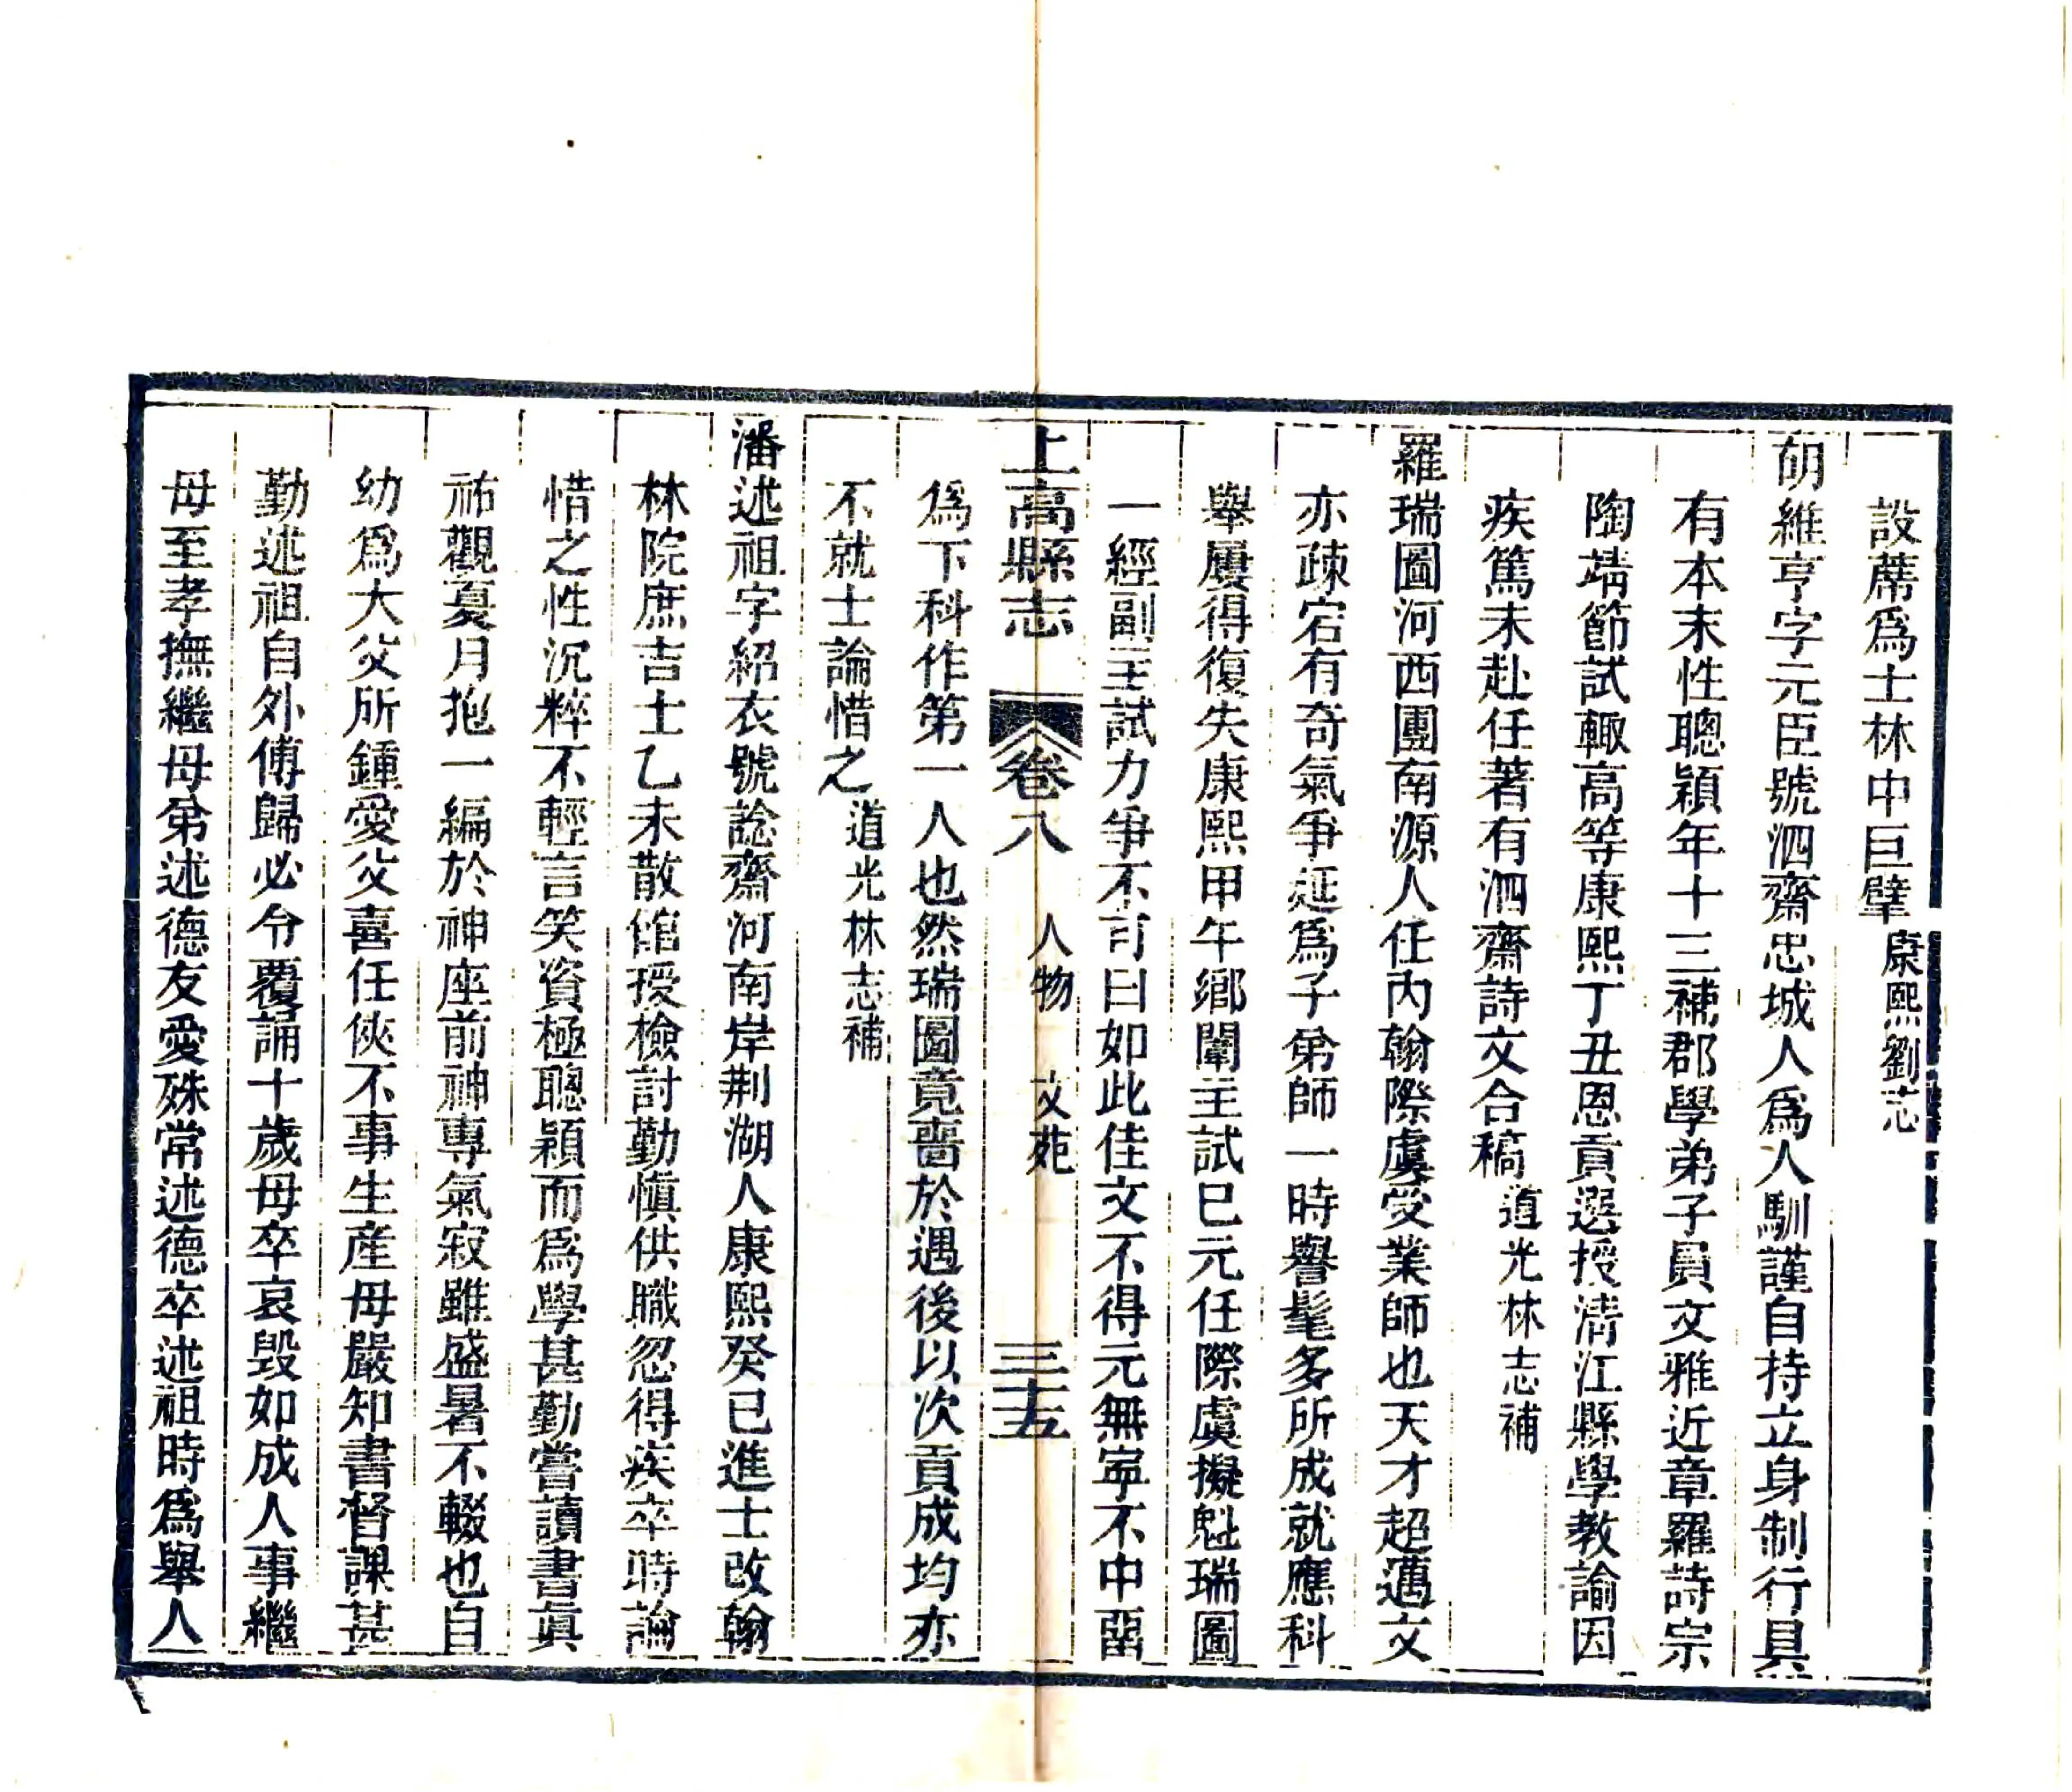 設蓆爲士林中巨擘康熙劉志
胡維亨字元臣號泗齋忠城人爲人馴謹自持立身制行具
有本末性聰穎年十三補郡學弟子員文雅近章羅詩宗
陶靖節試輙高等康熙丁丑恩貢選授淸江縣學敎諭因
疾篤未赴任著有泗齋詩文合稿道光林志補
羅瑞圖河西團南源人任內翰際虞受業師也天才超邁文
亦疎宕有奇氣爭延爲子弟師一時譽髦多所成就應科
舉屢得復失康熙甲午鄉闈主試巳元任際虞擬魁瑞圖
一經副主試力爭不可曰如此佳文不得元無寧不中畱
上高縣志 卷八 人物 文苑 三十五
爲下科作第一人也然瑞圖竟嗇於遇後以次貢成均亦
不就士論惜之道光林志補
潘述祖字紹衣號諗齋河南岸荆湖人康熙癸巳進士改翰
林院庶吉士乙未散館授檢討勤愼供職忽得疾卒時論
惜之性沉粹不輕言笑資極聰穎而爲學甚勤嘗讀書眞
祐觀夏月抱一編於神座前神專氣寂雖盛暑不輟也自
幼爲大父所鍾愛父喜任俠不事生產母嚴知書督課甚
勤述祖自外傅歸必令覆誦十歲母卒哀毀如成人事繼
母至孝撫繼母弟述德友愛殊常述德卒述祖時爲舉人